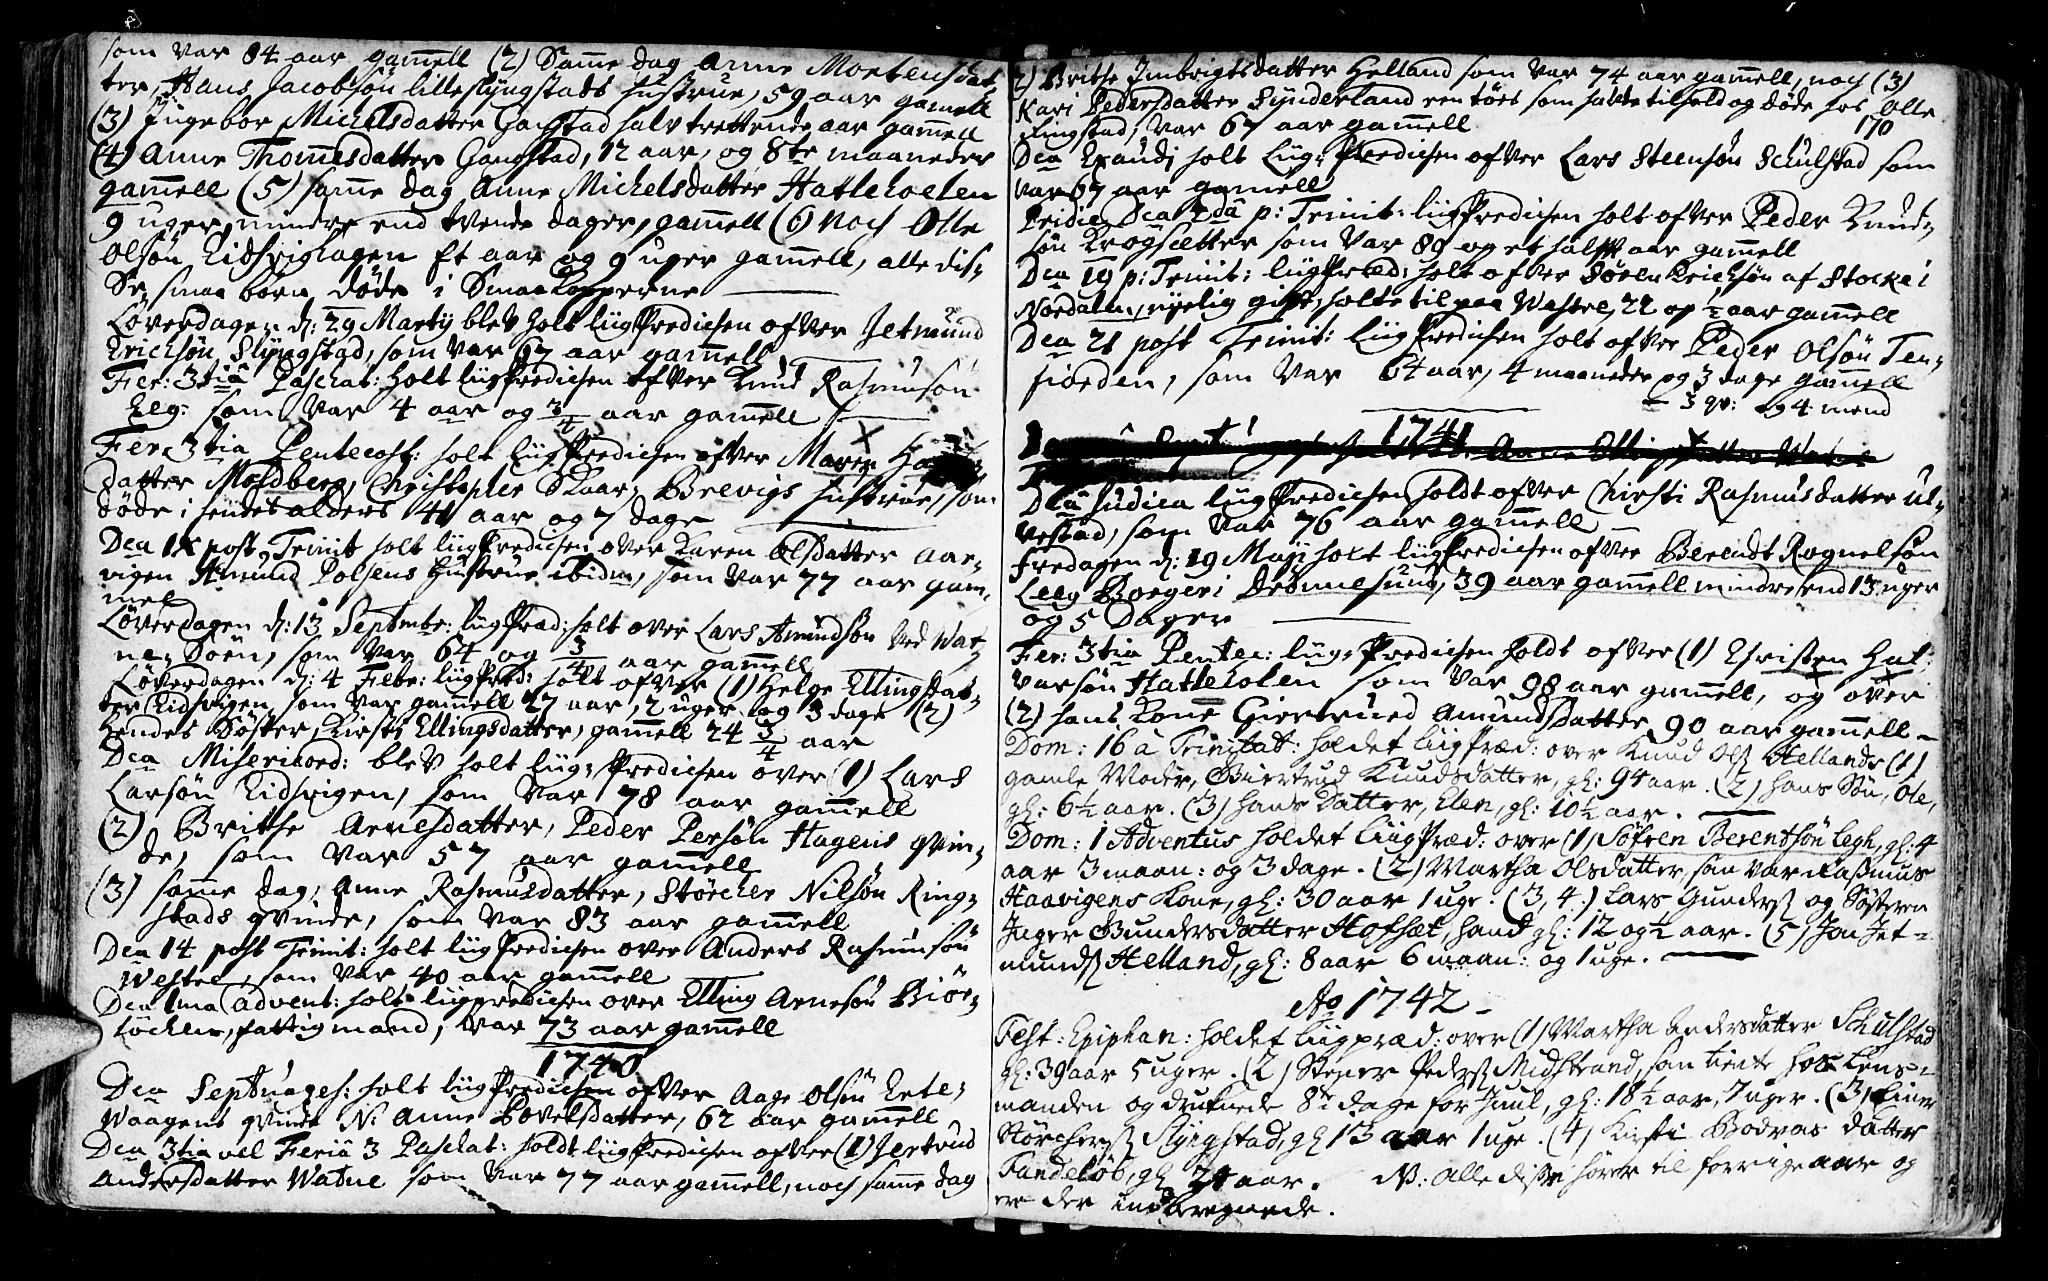 som var 84 aar gam̄ell (2) Sam̄e dag Anne Mortensdat
ter, Hans Jacobsøn lilleslyngstads hustrue, 59 aar gamell
(3) Ingebor Michelsdatter Gangstad halv trettende aar gam̄ell
(4) Anne Thom̄esdatter Gangstad, 12 aar, og 8te maaneder
gam̄ell (5) sam̄e dag Anne Michelsdatter Hatlehoelen
9 uger mindre end tvende dager, gam̄ell (6) noch Olle
Olsøn Eidsvighagen Et aar og 9 uger gam̄ell, alle dis-
Se smaa børn døde i Smaakopperne
Løverdagen d: 29 Marty blev holt liigPredichen ofver Jetmund
Erichsøn Slyngstad, som var 67 aar gam̄ell
Fer: 3tia Paschat: holt liigPredichen ofver Knud Rasmusøn
Eeg: som var 4 aar og 3/4 aar gam̄ell
Fer 3tia Pentecost: holt liigPredichen ofver Maren
datter Moldberg, Christopher Skaar, Brevigs hustrue, som
døde i hendes alders 41 aar og 7 dage
Dca 1X post Trinit holt liigPredichen over Karen Olsdatter Aar-
vigen Amund Polsens hustrue ibidm, som var 77 aar gam-
mel
Løverdagen d: 13 Septmbr: liigPræd: holt over Lars Amundsøn ved Wat-
ne Søen, som var 64 og 3/4 aar gam̄ell
Løverdagen d: 4 Febr: liigPred: holt ofver (1) Helge Ellingsdat-
ter Eidsvigen, som var gamell 27 aar, 2 uger og 3 dage (2)
Hendes Søster, Kirsti Ellingsdatter, gamell 24 3/4 aar
Dca Misericord: blev holt liig-Predichen over (1) Lars
Larsøn Eidsvigen, som var 78 aar gam̄ell
(2) Brithe Arnesdatter, Peder Persøn Hagens qvin-
de, som var 57 aar gam̄ell
(3) sam̄e dag, Anne Rasmusdatter, Størcher Nilsøn Ring-
stads qvinde, som var 83 aar gam̄ell
Dca 14 post Trinit: holt liigPredichen over Anders Rasmusøn
Westre, som var 40 aar gam̄ell
Dca 1ma Advent: holt liigpredichen over Elling Arnesøn Biør-
løchen, fattig mand, var 73 aar gam̄ell
1740
Dca Septuages: holt liigPredichen ofver Aage Olsøn Erte-
waagens qvinde N: Anne Povelsdatter, 62 aar gam̄ell
Dca 3tia vel Feria 3 Paschat: holdt liigPredichen ofver (1) Jertrud
Andersdatter Watne som var 77 aar gam̄ell, noch sam̄e dag
2) Brithe Imbrigtsdatter Helland som var 74 aar gam̄ell, noch (3)
Kari Pedersdatter Synderland een tøes som hafde tilhold og døde hos Olle
Ringstad, var 67 aar gam̄ell
170
Dca Exaudi holt liig-Predichen ofver Lars Steensøn Schulstad som
var 67 aar gam̄ell
Pridie Dca 2da p: Trinit: liigPredichen holt ofver Peder Knud-
søn Krogsætter som var 89 og et halft aar gam̄ell
Dca 19 p: Trinit: liigPræd: holt ofver Søren Erichsøn af Stocke i
Nordalen, nyelig gift, holte til paa Westre, 22 og ½ aar gam̄ell
Dca 21 post Trinit: liigPredichen holt ofver Peder Olsøn Ten-
fiorden, som var 64 aar, 4 maaneder og 3 dage gam̄ell
3 qv: og 4 mend
1741
Anne Ellingsdatter Watne
Dca Judica liigPredichen holdt ofver Chirsti Rasmusdatter Ul-
vestad, som var 76 aar gam̄ell
Fredagen d: 19 Maij holt liigPredichen ofver Berendt Rognelsøn
Leeg Borger i Dromnesund, 39 aar gam̄ell mindre end 13 uger
og 5 Dager
Fer: 3tia Pentec: liig-Predichen holdt ofver (1) Christen Hal-
varsøn Hatleholen som var 98 aar gam̄ell, og over
(2) hans Kone Giertrued Amundsdatter 90 aar gam̄ell
Dom: 16 à Trinitat: holdet liigPræd: over Knud Ols: Hellands (1)
gamle Moder, Giertrud Knudsdatter, gl: 94 aar. (2) hans Søn, Ole,
gl: 6½ aar. (3) hans Datter, Elen, gl: 10½ aar.
Dom: 1 Adventus holdet liigPræd: over (1) Søfren Berentsøn Legh, gl: 4
aar 3 maan: og 3 dage. (2) Martha Olsdatter, som var Rasmus
Haavigens Kone, gl: 30 aar 1 uge. (3, 4.) Lars Gunders: og Søsteren
Inger Gundersdatter Hofset, hand gl: 12 og ½ aar. (5) Jon Jet-
munds: Helland, gl: 8 aar 6 maan: og 1 uge.
Ao 1742
Fest: Epiphan: holdet liigpræd: over (1) Martha Andersdatter Schulstad
gl: 39 aar 5 uger. (2) Steper Peders: Midstrand, som tiente hos Lens-
manden og druknede 8te dage for Juul, gl: 18½ aar, 7 uger. (3) Einer
Størchers: Slyngstad, gl 13 aar 1 uge. (4) Kirsti Bodvas datter
Tandeløb, gl 24 aar. NB: Alle disse hører til forrige aar og
ere der indberegnede.